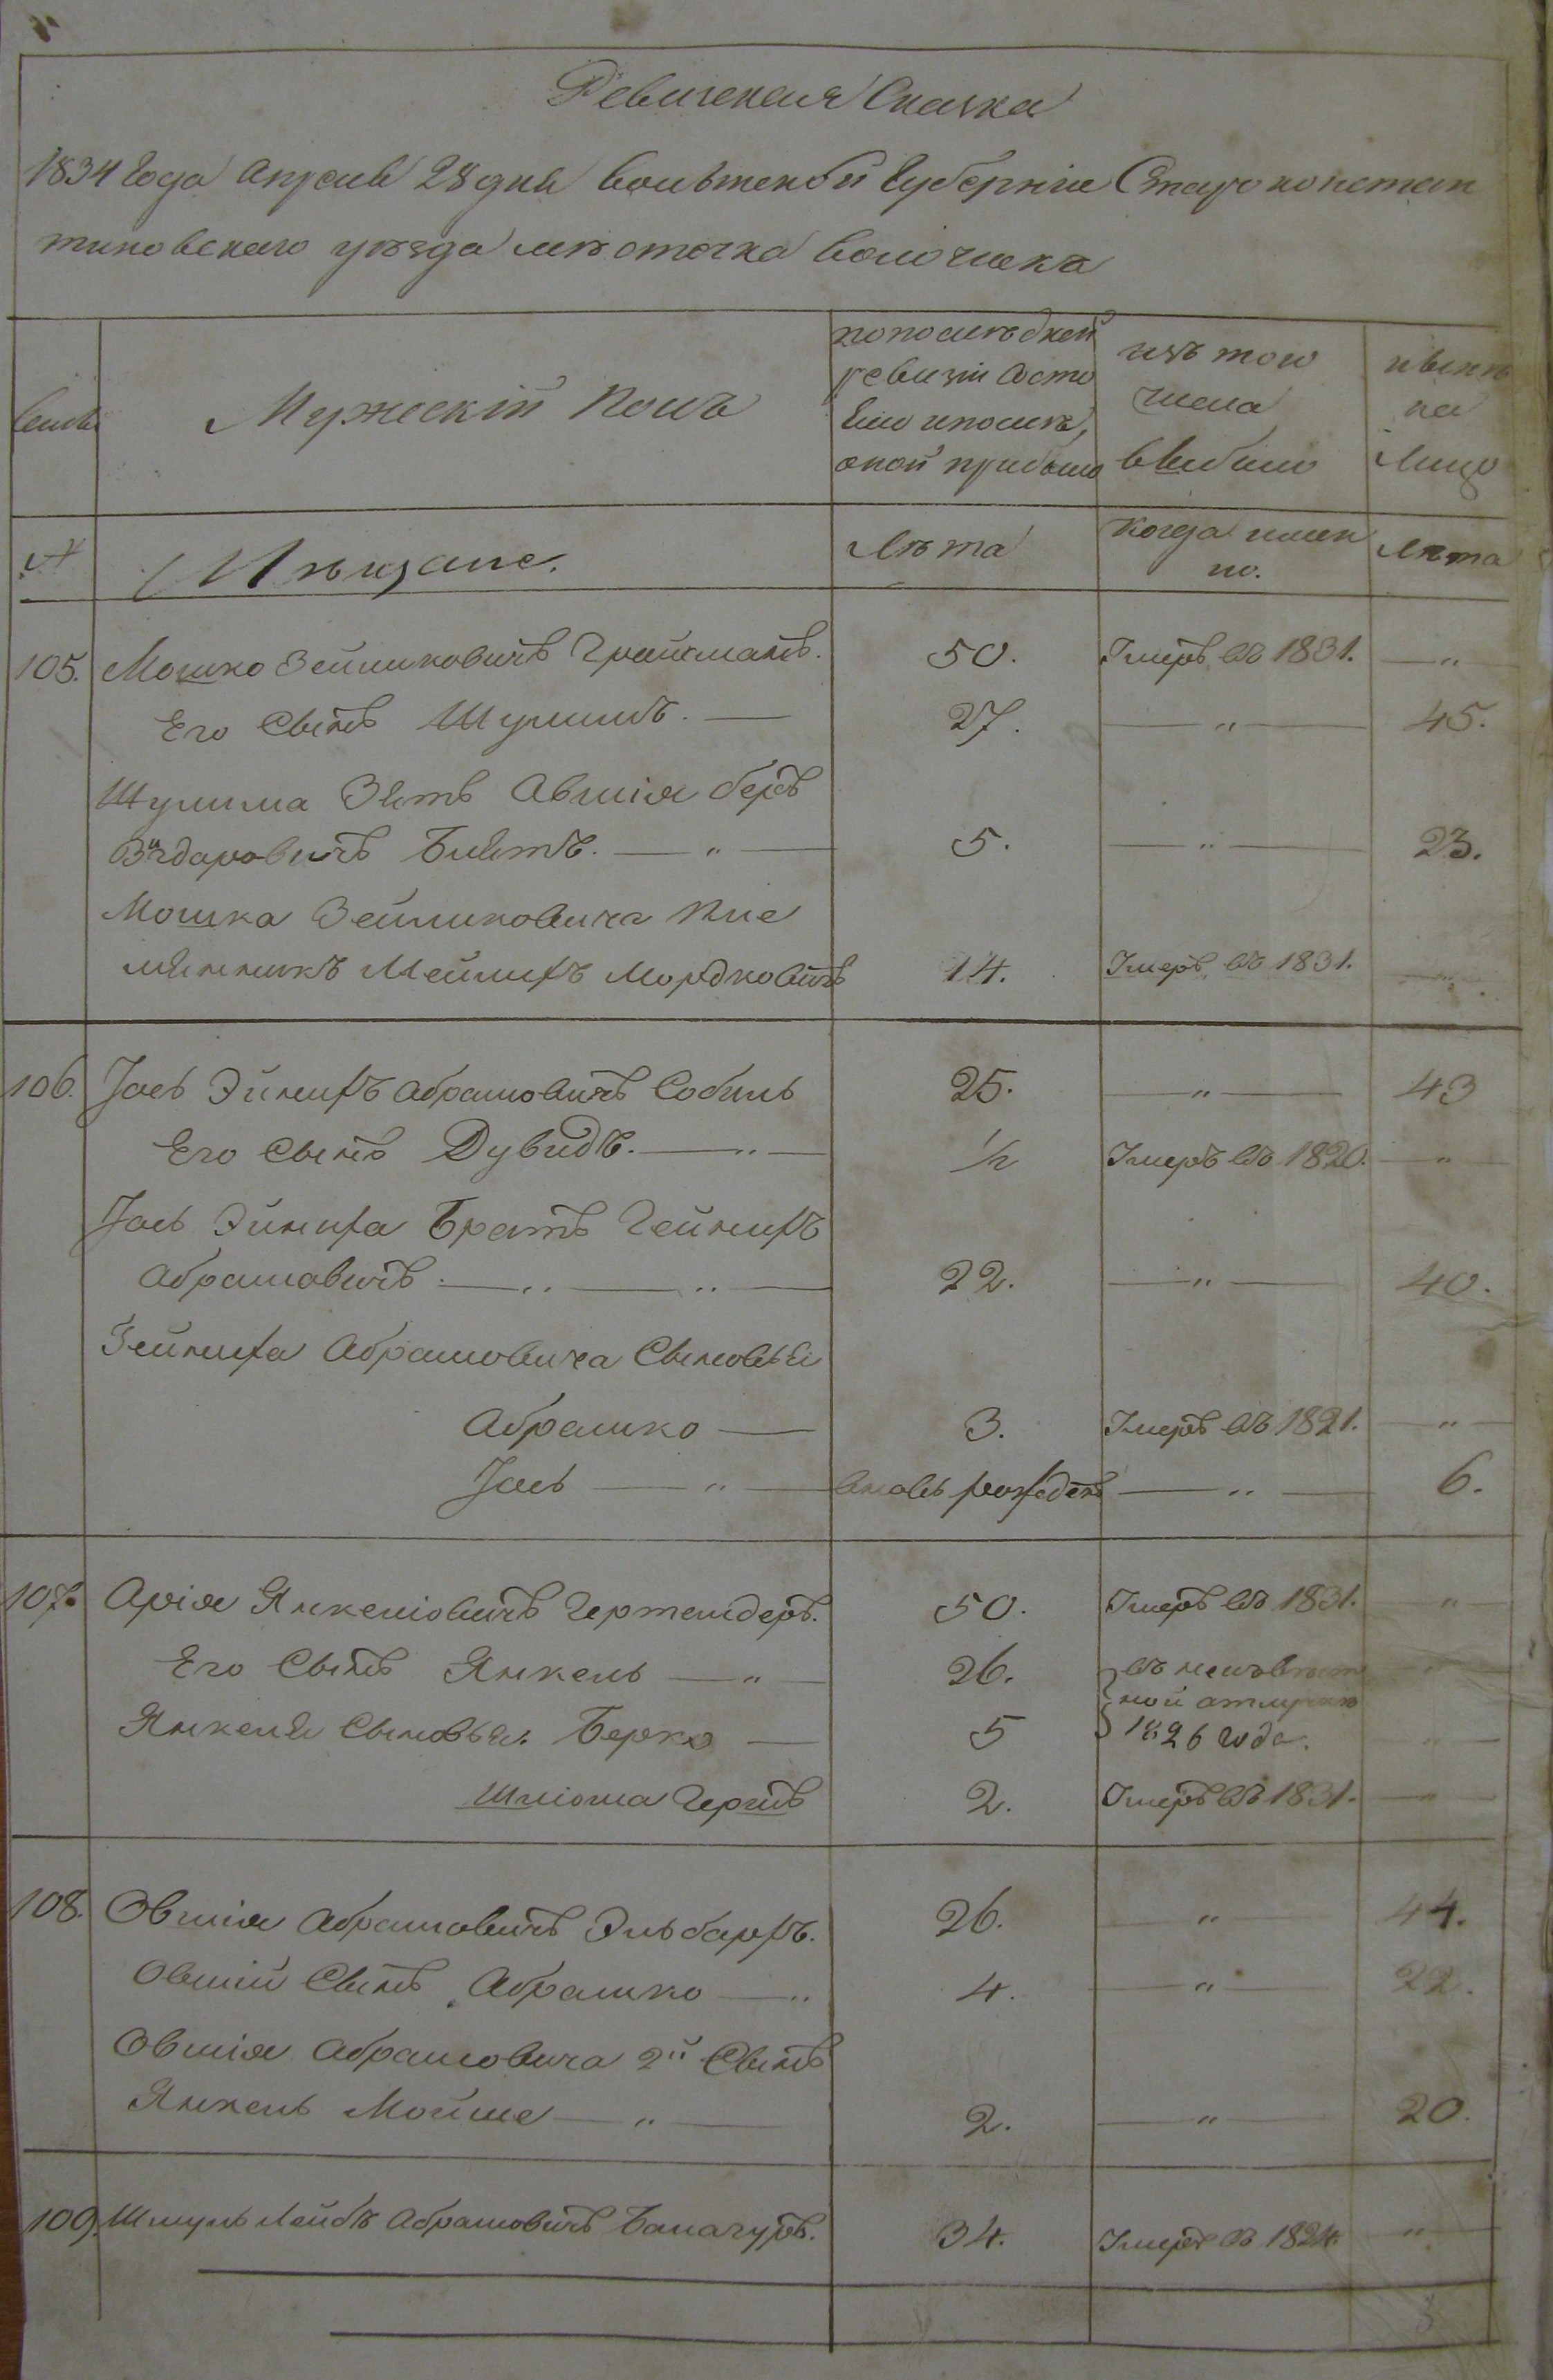 Ревизская Сказка
1834 года апреля 28 дня Волынской Губернiи Староконстан
тиновского уезда мѣсточка Волочиска
Семьи
Мужескiй полъ
по послѣдней
ревизiи состо
яло и послѣ,
оной прибыло
изъ того
числа
выбыло
нынѣ
на
лицо
№
Мѣщане.
Лѣта
когда имен
но.
Лѣта
105. Мошко Зейликовичъ Гройсманъ. 50. Умеръ въ 1831. — " —
Его Сынъ Шулимъ. — 27. — " — 45.
Шулима Зять Авшiя беръ
Биятъ. — " — 5. — " — 23.
Мошка Зейликовича пле
мянникъ Мейлихъ Мордковичъ 14. Умеръ въ 1831. — " —
106. Iось Эйнихъ Абрамовичъ Собиль 25. — " — 43
Его Сынъ Дувидъ. — " — 1/2 Умеръ въ 1820. — " —
Iось Эйниха Братъ Гейнихъ
Абрамовичъ. — " — " — 22. — " — 40.
Гейниха Абрамовича Сыновья
Абрамко — 3. Умеръ въ 1821. — " —
Iось — " — вновь рожденъ — " — 6.
107. Арiя Янкелiовичъ Гертендеръ. 50. Умеръ въ 1831. — " —
Его Сынъ Янкель — " — 26. въ неизвѣст — " —
ной отлучкѣ
Янкеля Сыновья. Берко — 5 1826 года. " —
Шлiома Гершъ 2. Умеръ въ 1831. — " —
108. Овшiя Абрамовичъ Эльбархъ. 26. — " — 44.
Овшiи Сынъ Абрамко — " 4. — " — 22.
Овшiя Абрамовича 2й Сынъ
Янкель Мойше — " — 2. — " — 20.
109. Шмуль Лейбъ Абрамовичъ Балагуръ. 34. Умеръ въ 1824. " —